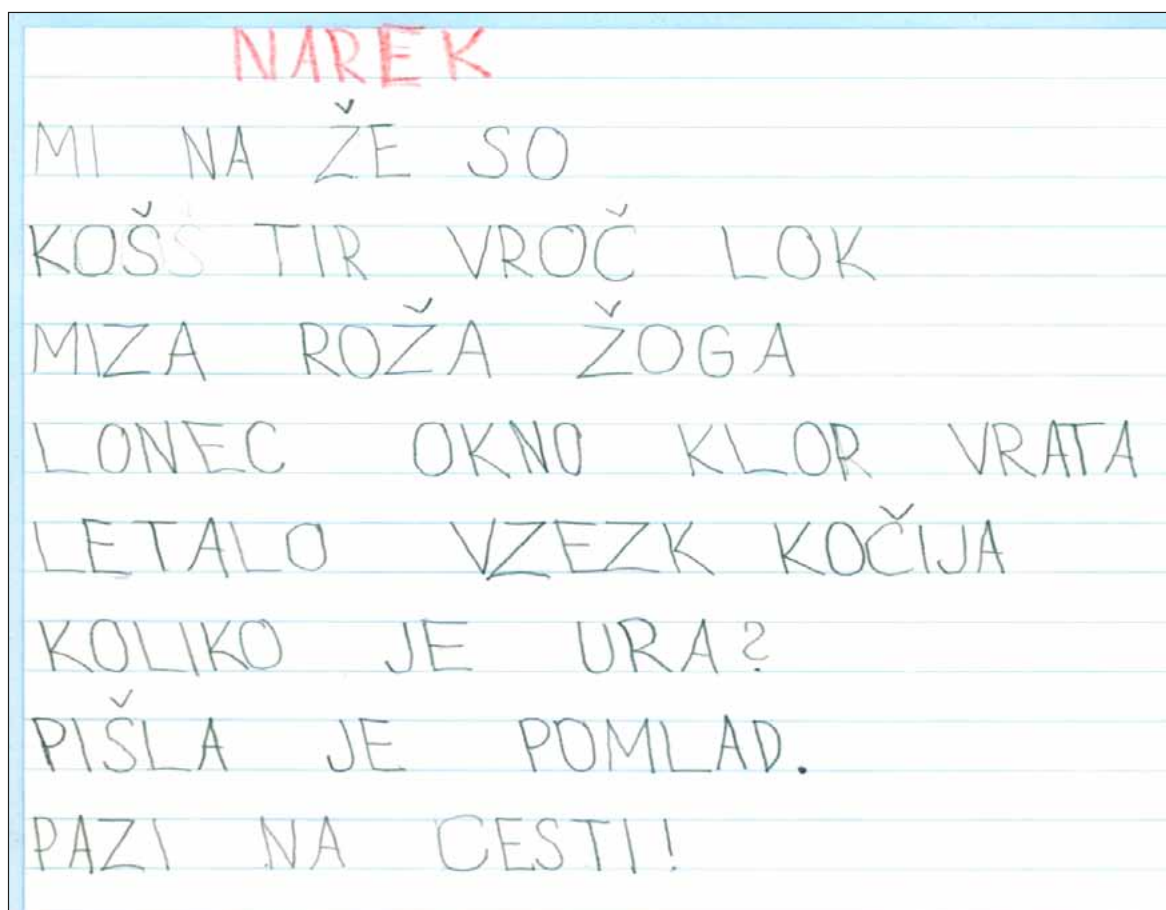 NAREK
MI NA ŽE SO
KOŠ TIR VROČ LOK
MIZA ROŽA ŽOGA
LONEC OKNO KLOR VRATA
LETALO VZEZK KOČIJA
KOLIKO JE URA?
PIŠLA JE POMLAD.
PAZI NA CESTI!